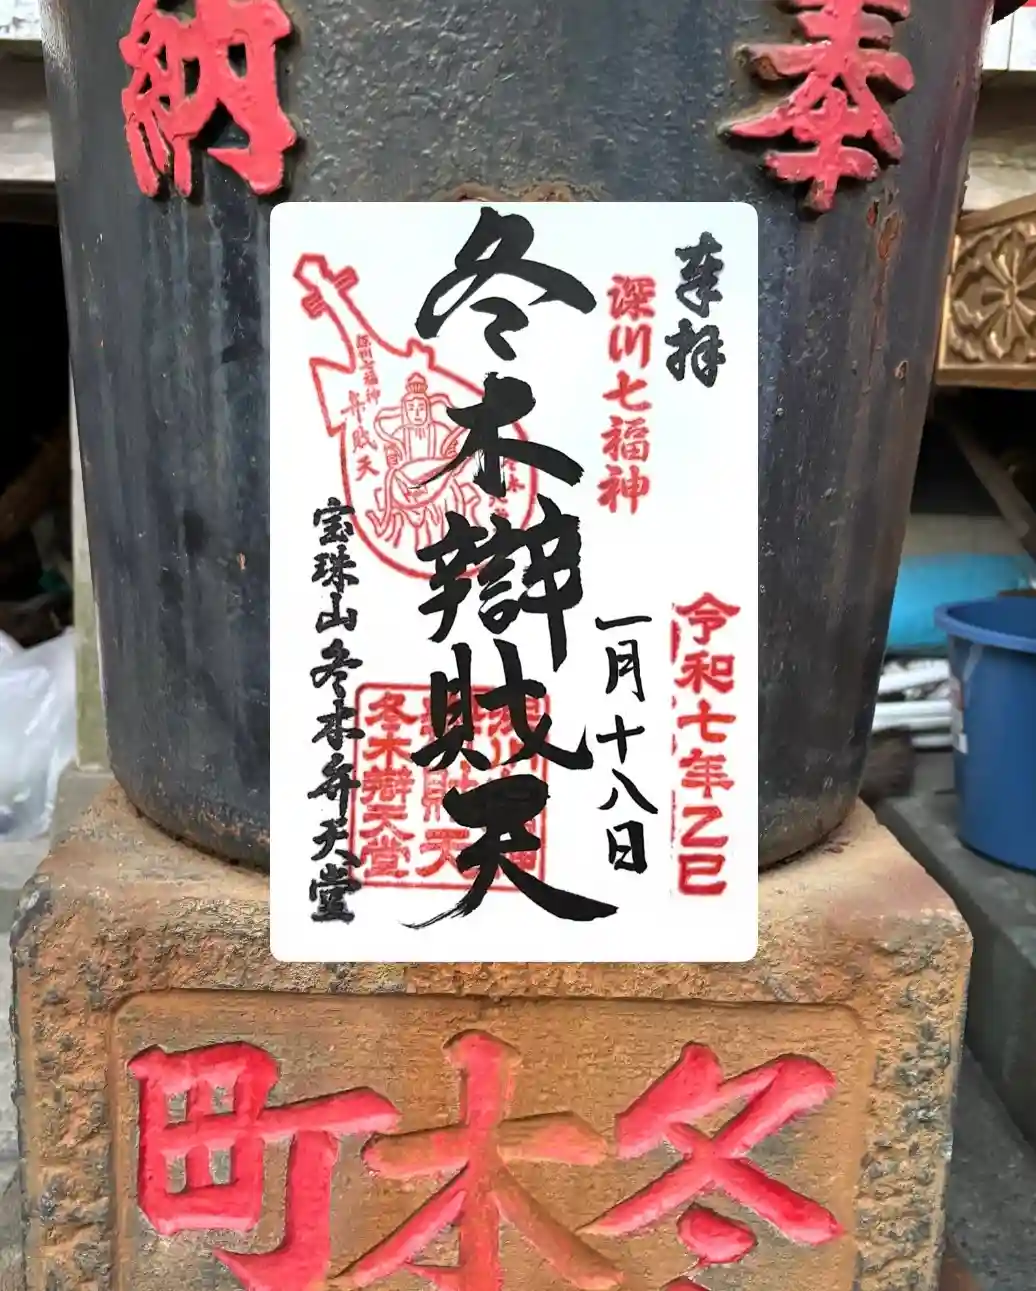 奉納
奉拝
深川七福神
令和七年乙巳
一月十八日
冬木辯財天
深川七福神
弁財天
冬木辯天堂
宝珠山冬木弁天堂
冬木町